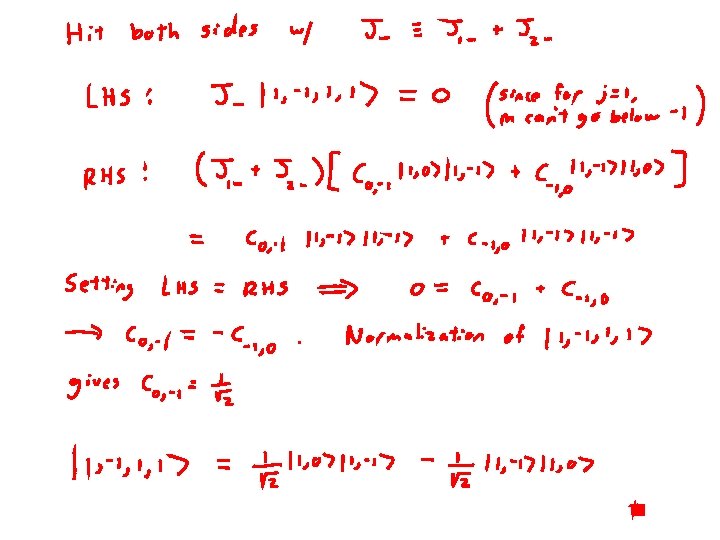 Hit both sides w/ J₋ ≡ J₁₋ + J₂₋
LHS : J₋ |1,-1,1,1> = 0 (since for j=1, m can't go below -1)
RHS : (J₁₋ + J₂₋)[C₀,₋₁ |1,0>|1,-1> + C₋₁,₀ |1,-1>|1,0>]
= C₀,₋₁ |1,-1>|1,-1> + C₋₁,₀ |1,-1>|1,-1>
Setting LHS = RHS ⟹ 0 = C₀,₋₁ + C₋₁,₀
→ C₀,₋₁ = -C₋₁,₀ . Normalization of |1,-1,1,1>
gives C₀,₋₁ = 1/√2
|1,-1,1,1> = 1/√2 |1,0>|1,-1> - 1/√2 |1,-1>|1,0>